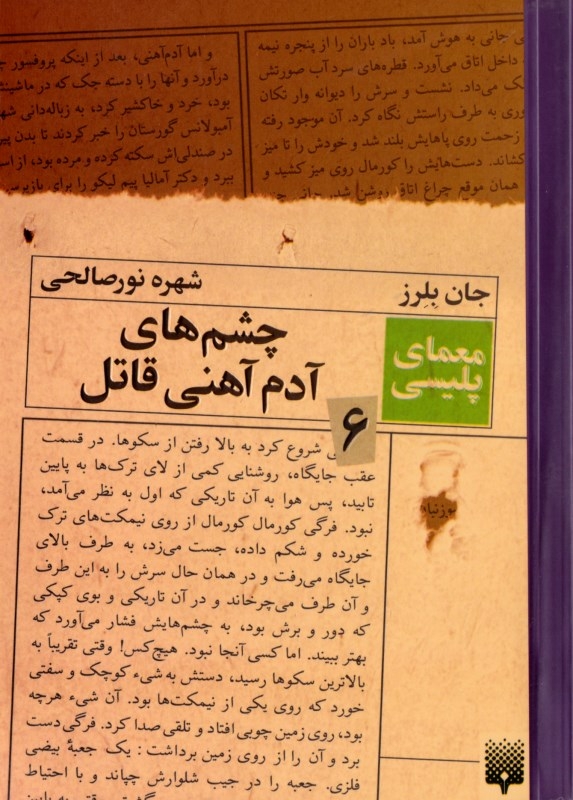 ی جانی به هوش آمد، باد باران را از پنجره نیمه
داخل اتاق می‌آورد. قطره‌های سرد آب صورتش
ک می‌داد. نشست و سرش را دیوانه وار تکان
وری به طرف راستش نگاه کرد. آن موجود رفته
زحمت روی پاهایش بلند شد و خودش را تا میز
کشاند. دست‌هایش را کورمال روی میز کشید و
همان موقع چراغ اتاق روشن شد. جانی
و اما آدم‌آهنی، بعد از اینکه پروفسور
درآورد و آنها را با دسته جک که در ماشینش
بود، خرد و خاکشیر کرد، به زباله‌دانی شه
آمبولانس گورستان را خبر کردند تا بدن پیر
در صندلی‌اش سکته کرده و مرده بود، از اس
ببرد و دکتر آمالیا پیم لیکو را برای بازپرس
جان بِلِرز
شهره نورصالحی
معمای
پلیسی
چشم‌های
آدم آهنی قاتل
۶
شروع کرد به بالا رفتن از سکوها. در قسمت
عقب جایگاه، روشنایی کمی از لای ترک‌ها به پایین
تابید، پس هوا به آن تاریکی که اول به نظر می‌آمد،
نبود. فرگی کورمال کورمال از روی نیمکت‌های ترک
خورده و شکم داده، جست می‌زد، به طرف بالای
جایگاه می‌رفت و در همان حال سرش را به این طرف
و آن طرف می‌چرخاند و در آن تاریکی و بوی کپکی
که دور و برش بود، به چشم‌هایش فشار می‌آورد که
بهتر ببیند. اما کسی آنجا نبود. هیچ‌کس! وقتی تقریباً به
بالاترین سکوها رسید، دستش به شیء کوچک و سفتی
خورد که روی یکی از نیمکت‌ها بود. آن شیء هرچه
بود، روی زمین چوبی افتاد و تلقی صدا کرد. فرگی دست
برد و آن را از روی زمین برداشت: یک جعبهٔ بیضی
فلزی. جعبه را در جیب شلوارش چپاند و با احتیاط